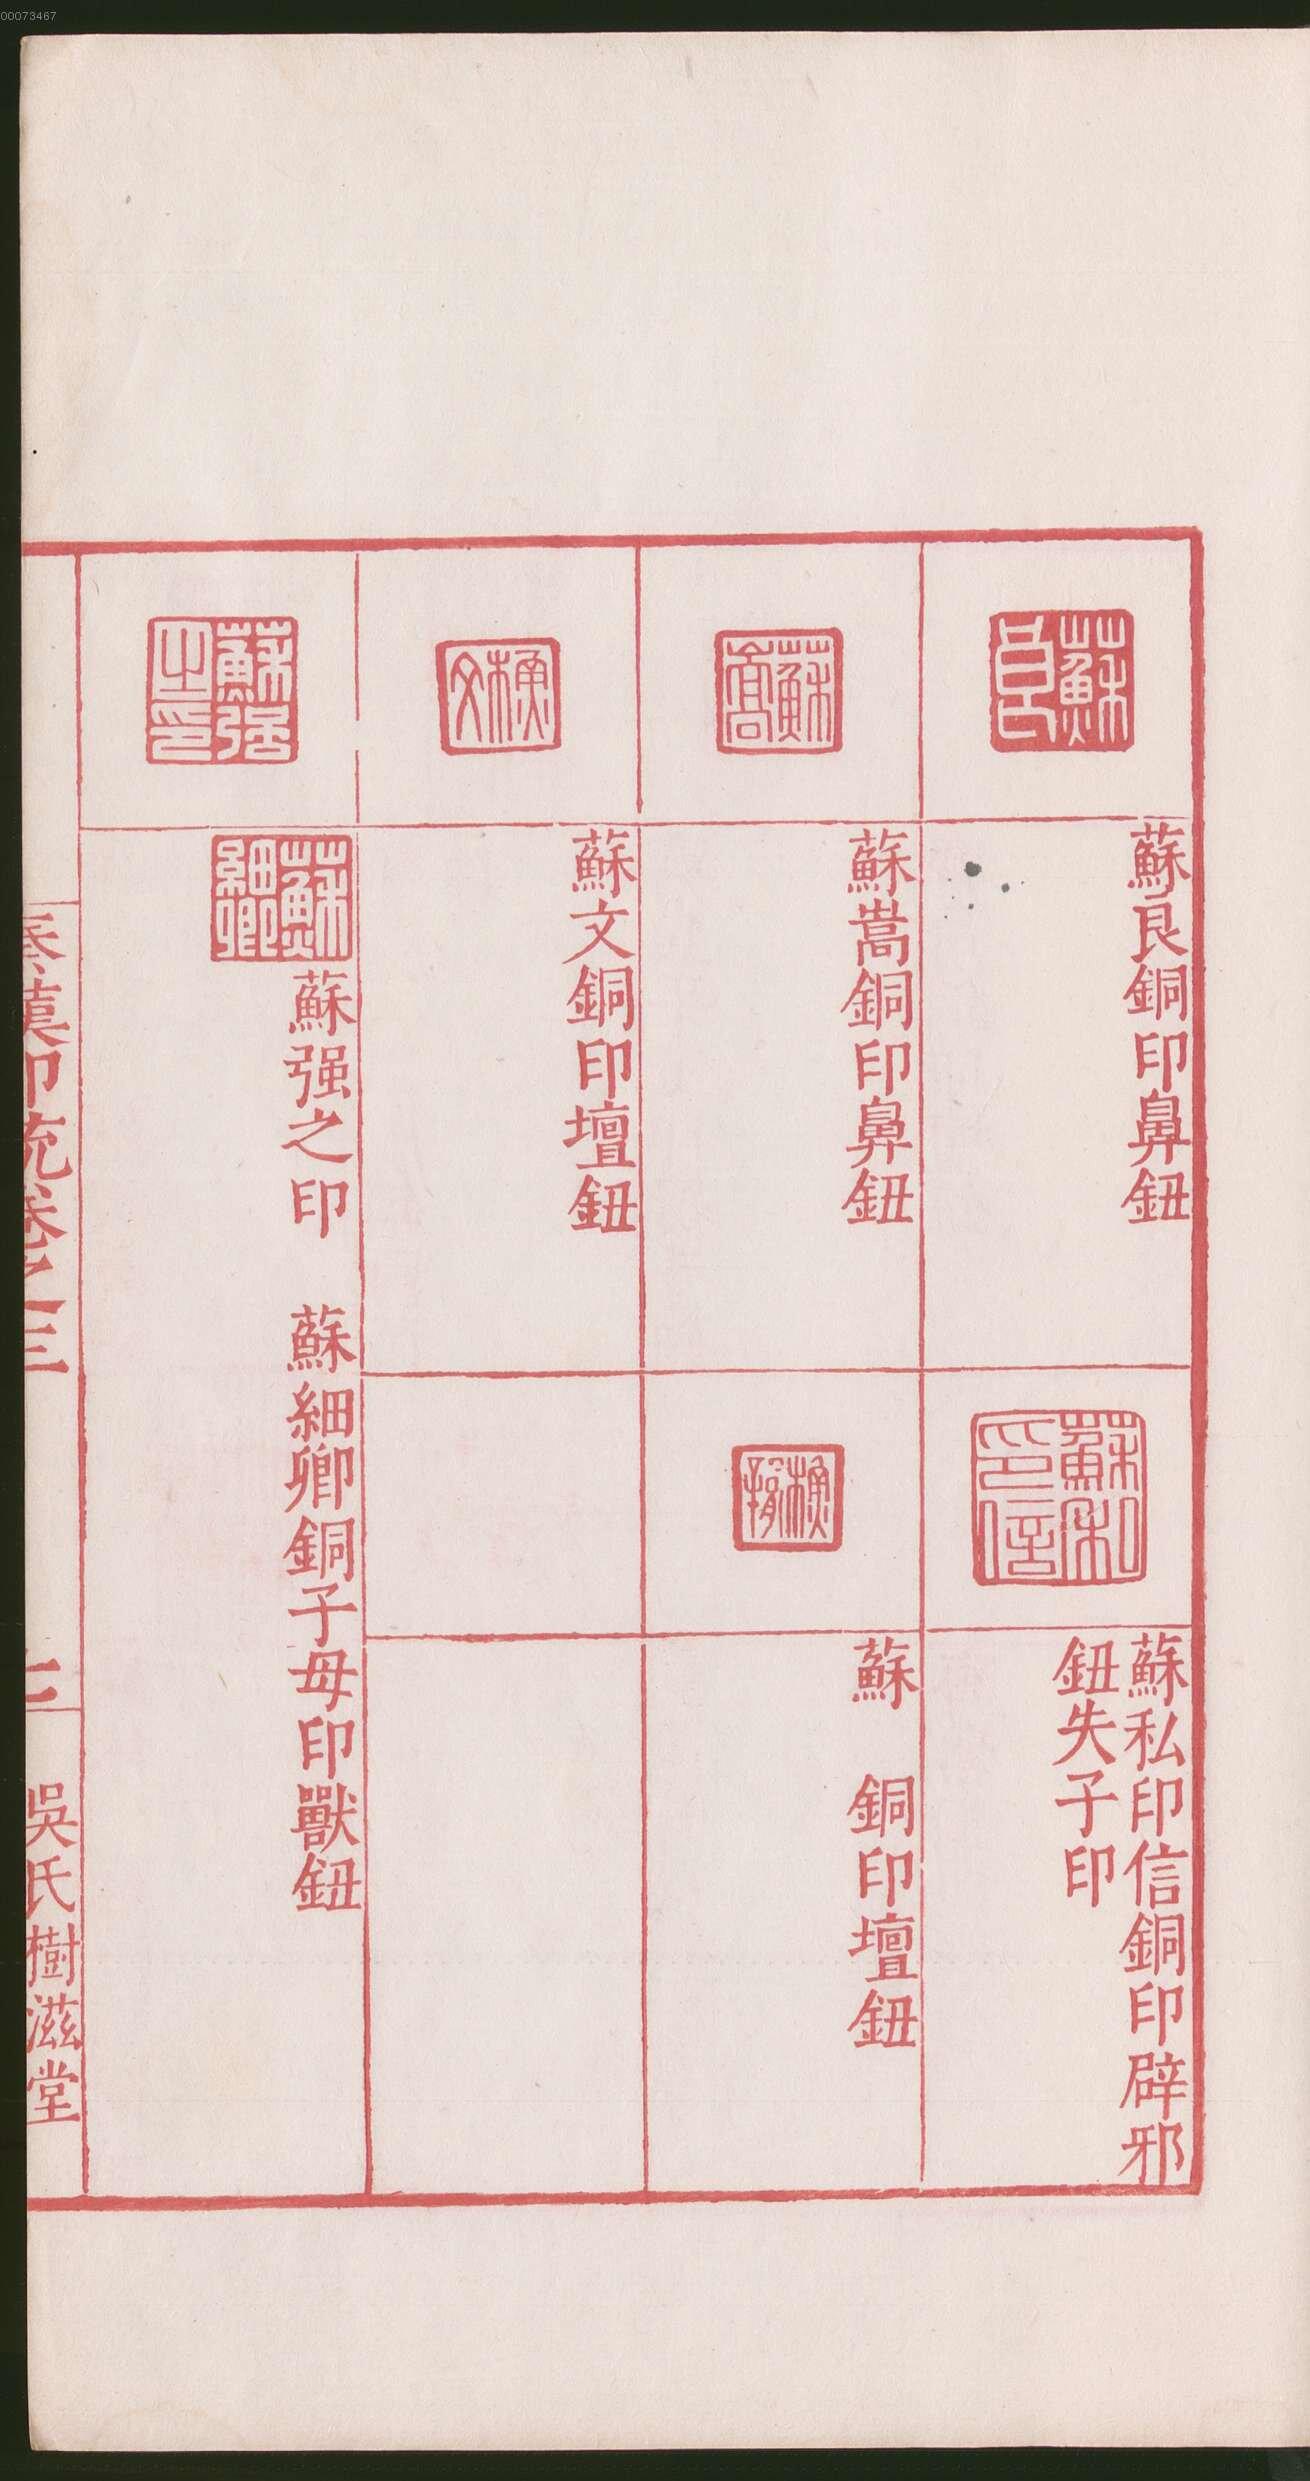 00073467
蘇良
蘇良銅印鼻鈕
蘇私印信
蘇私印信銅印辟邪
鈕失子印
蘇嵩
蘇嵩銅印鼻鈕
蘇
蘇 銅印壇鈕
蘇文
蘇文銅印壇鈕
蘇强之印
蘇細卿
蘇强之印 蘇細卿銅子母印獸鈕
秦漢印統卷之三
吳氏樹滋堂